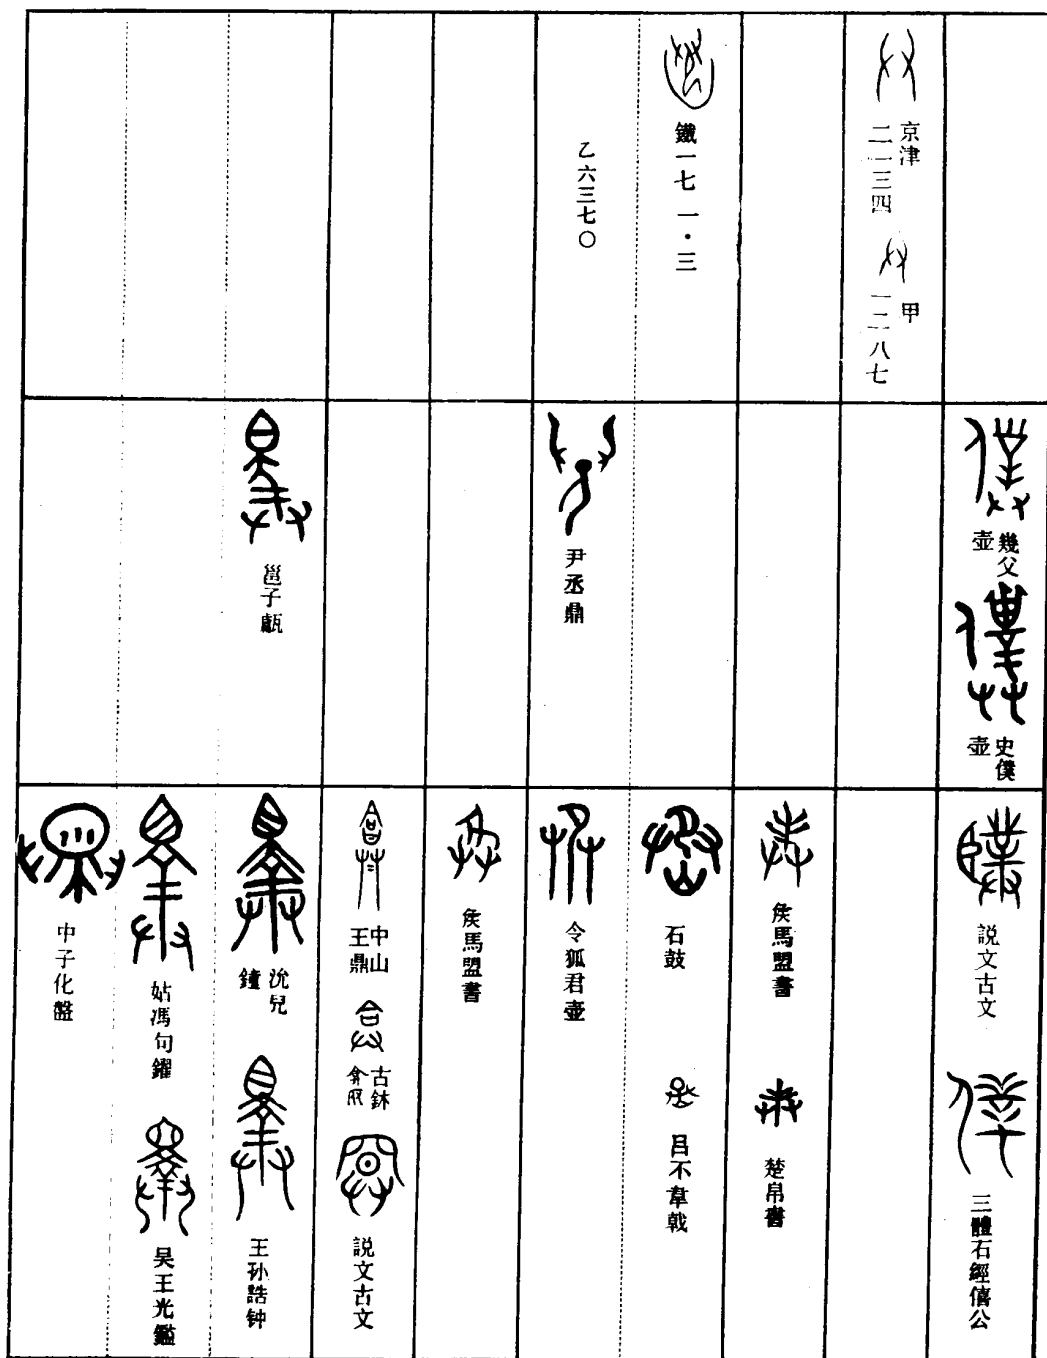 京津
二一三四
甲
一二八七
鐵一七一·三
乙六三七〇
幾父
壺
史僕
壺
尹丞鼎
邕子甗
説文古文
三體石經僖公
侯馬盟書
楚帛書
石鼓
吕不韋戟
令狐君壺
侯馬盟書
中山
王鼎
古鉢
説文古文
沇兒
鐘
王孙誥钟
姑馮句鑃
吴王光鑑
中子化盤